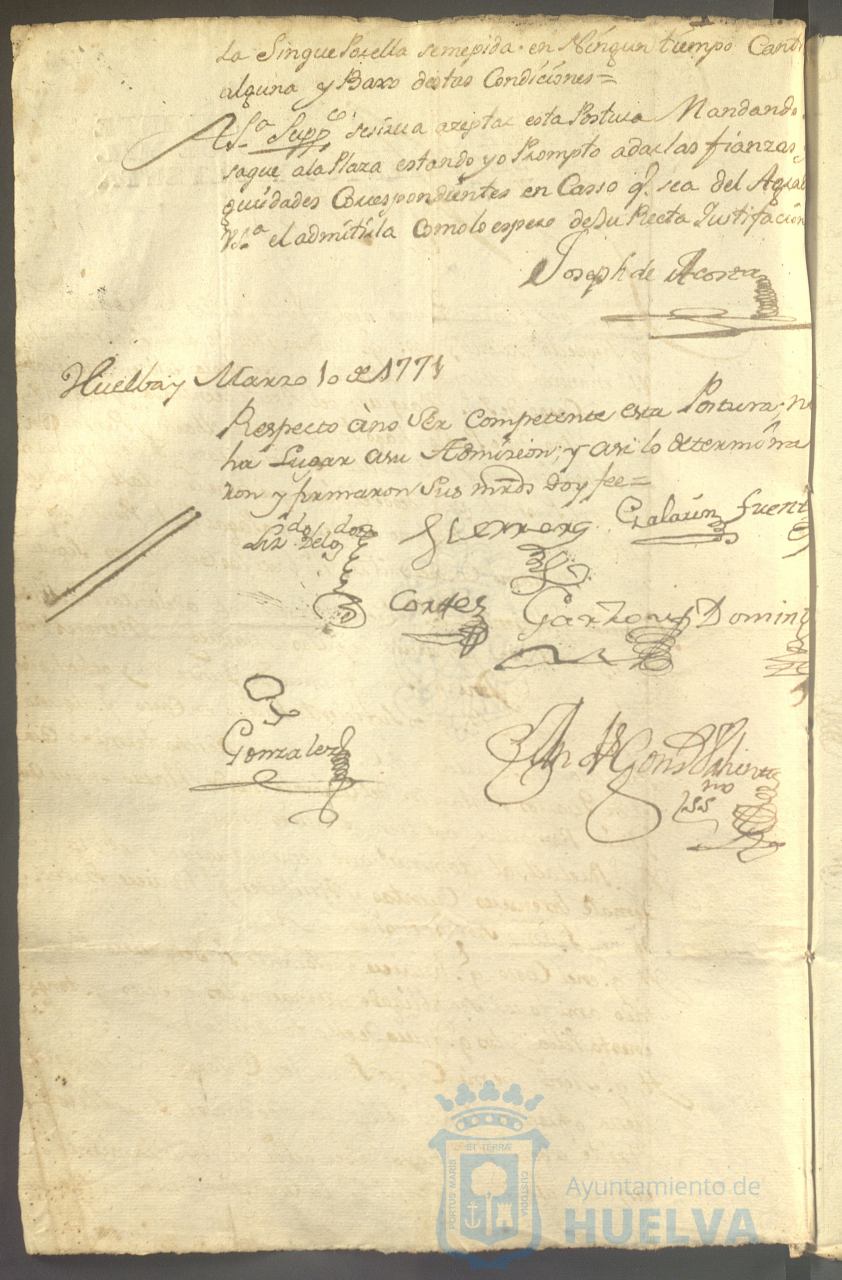 la Singue Por ella seme pida en Ningun tiempo Canti
alguna y Baxo destas Condiciones=
A Vs.ª Supp.co se sirva azeptar esta Postura Mandando
saque a la Plaza estando yo Prompto a dar las fianzas
quidades Correspondientes en Casso q.e sea del Agrad
Vs.ª el admitirla Como lo espero de su Recta Justificacion
Joseph de Acosta
Huelba y Marzo 10 de 1771
Respecto àno Ser Competente esta Postura, no
ha Lugar asu Admision; y asi lo determina
ron y firmaron Sus mrds Doy fee=
Herrera Galaun fuent
Cortes Garzon Doming
Gonzalez
ss.no
PORTUS MARIS
ET TERRÆ
CUSTODIA
Ayuntamiento de
HUELVA